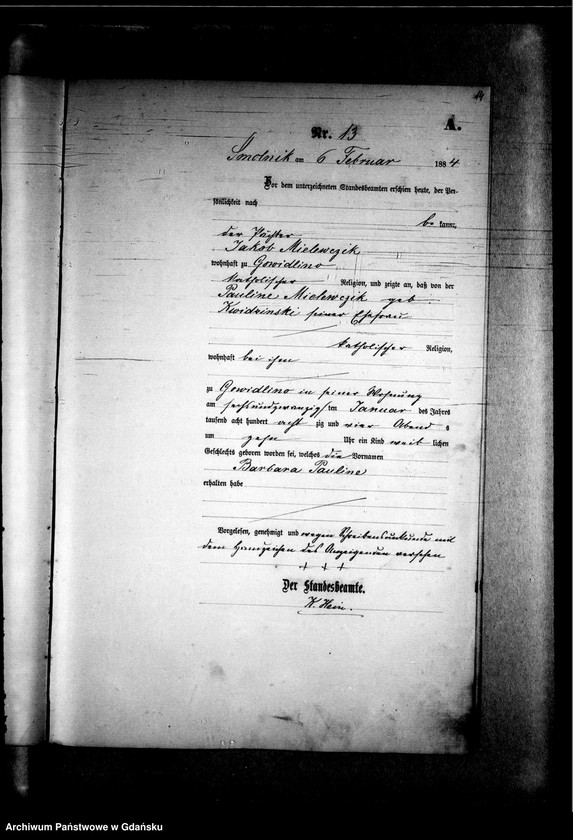 14
A.
Nr. 13
Smolnik am 6 Februar 1884
Vor dem unterzeichneten Standesbeamten erschien heute, der Per-
sönlichkeit nach
be kannt,
der Pächter
Jakob Mielewczik
wohnhaft zu Gowidlino
katholischer Religion, und zeigte an, daß von der
Pauline Mielewczik geb
Kwidzinski seiner Ehefrau
katholischer Religion,
wohnhaft bei ihm
zu Gowidlino in seiner Wohnung
am sechsundzwanzigsten Januar des Jahres
tausend acht hundert acht zig und vier Abend s
um zehn Uhr ein Kind weib lichen
Geschlechts geboren worden sei, welches die Vornamen
Barbara Pauline
erhalten habe
Vorgelesen, genehmigt und wegen Schreibensunkunde mit
dem Handzeichen des Anzeigenden versehen
+ + +
Der Standesbeamte.
K. Hein.
Archiwum Państwowe w Gdańsku